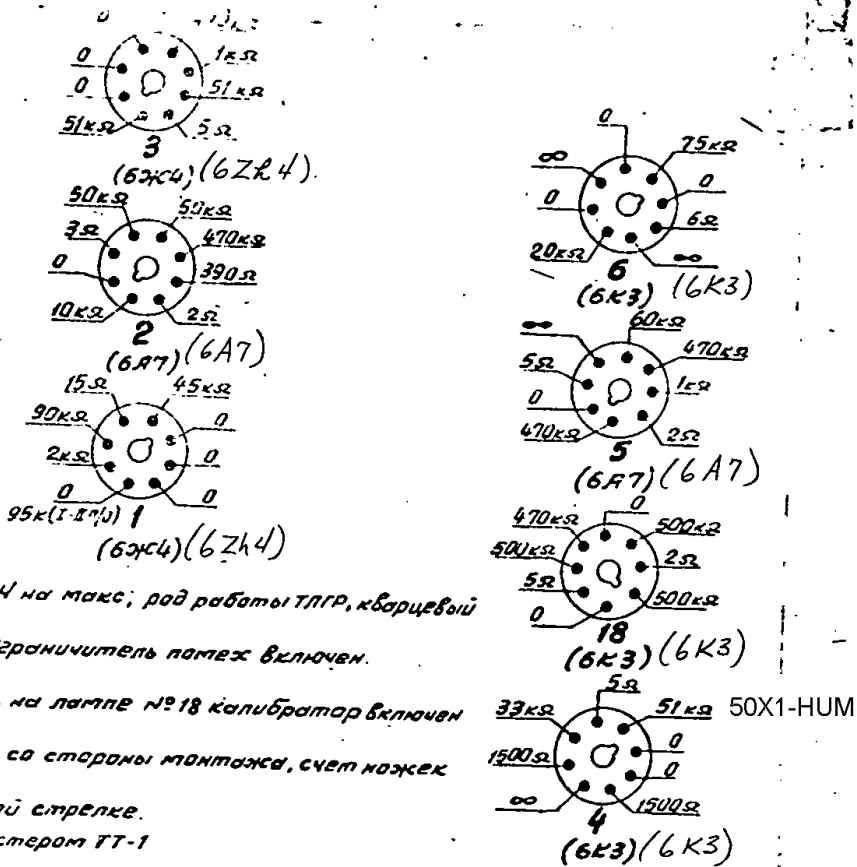 0
1кΩ
0
51кΩ
51кΩ
5Ω
3
(6Ж4) (6Zh4).
50кΩ
50кΩ
3Ω
470кΩ
0
390Ω
10кΩ
2Ω
2
(6А7) (6A7)
15Ω
45кΩ
90кΩ
0
2кΩ
0
0
0
95к(I-II п/д)
1
(6Ж4) (6Zh4)
0
75кΩ
∞
0
0
6Ω
20кΩ
∞
6
(6К3) (6K3)
60кΩ
∞
470кΩ
5Ω
1кΩ
0
470кΩ
2Ω
5
(6А7) (6A7)
0
470кΩ
500кΩ
500кΩ
2Ω
5Ω
500кΩ
0
18
(6К3) (6K3)
5Ω
33кΩ
51кΩ
50X1-HUM
1500Ω
0
0
∞
1500Ω
4
(6К3) (6K3)
на макс; род работы ТЛГР, кварцевый
граничитель помех включен.
на лампе №18 калибратор включен
со стороны монтажа, счет ножек
й стрелке.
стером ТТ-1